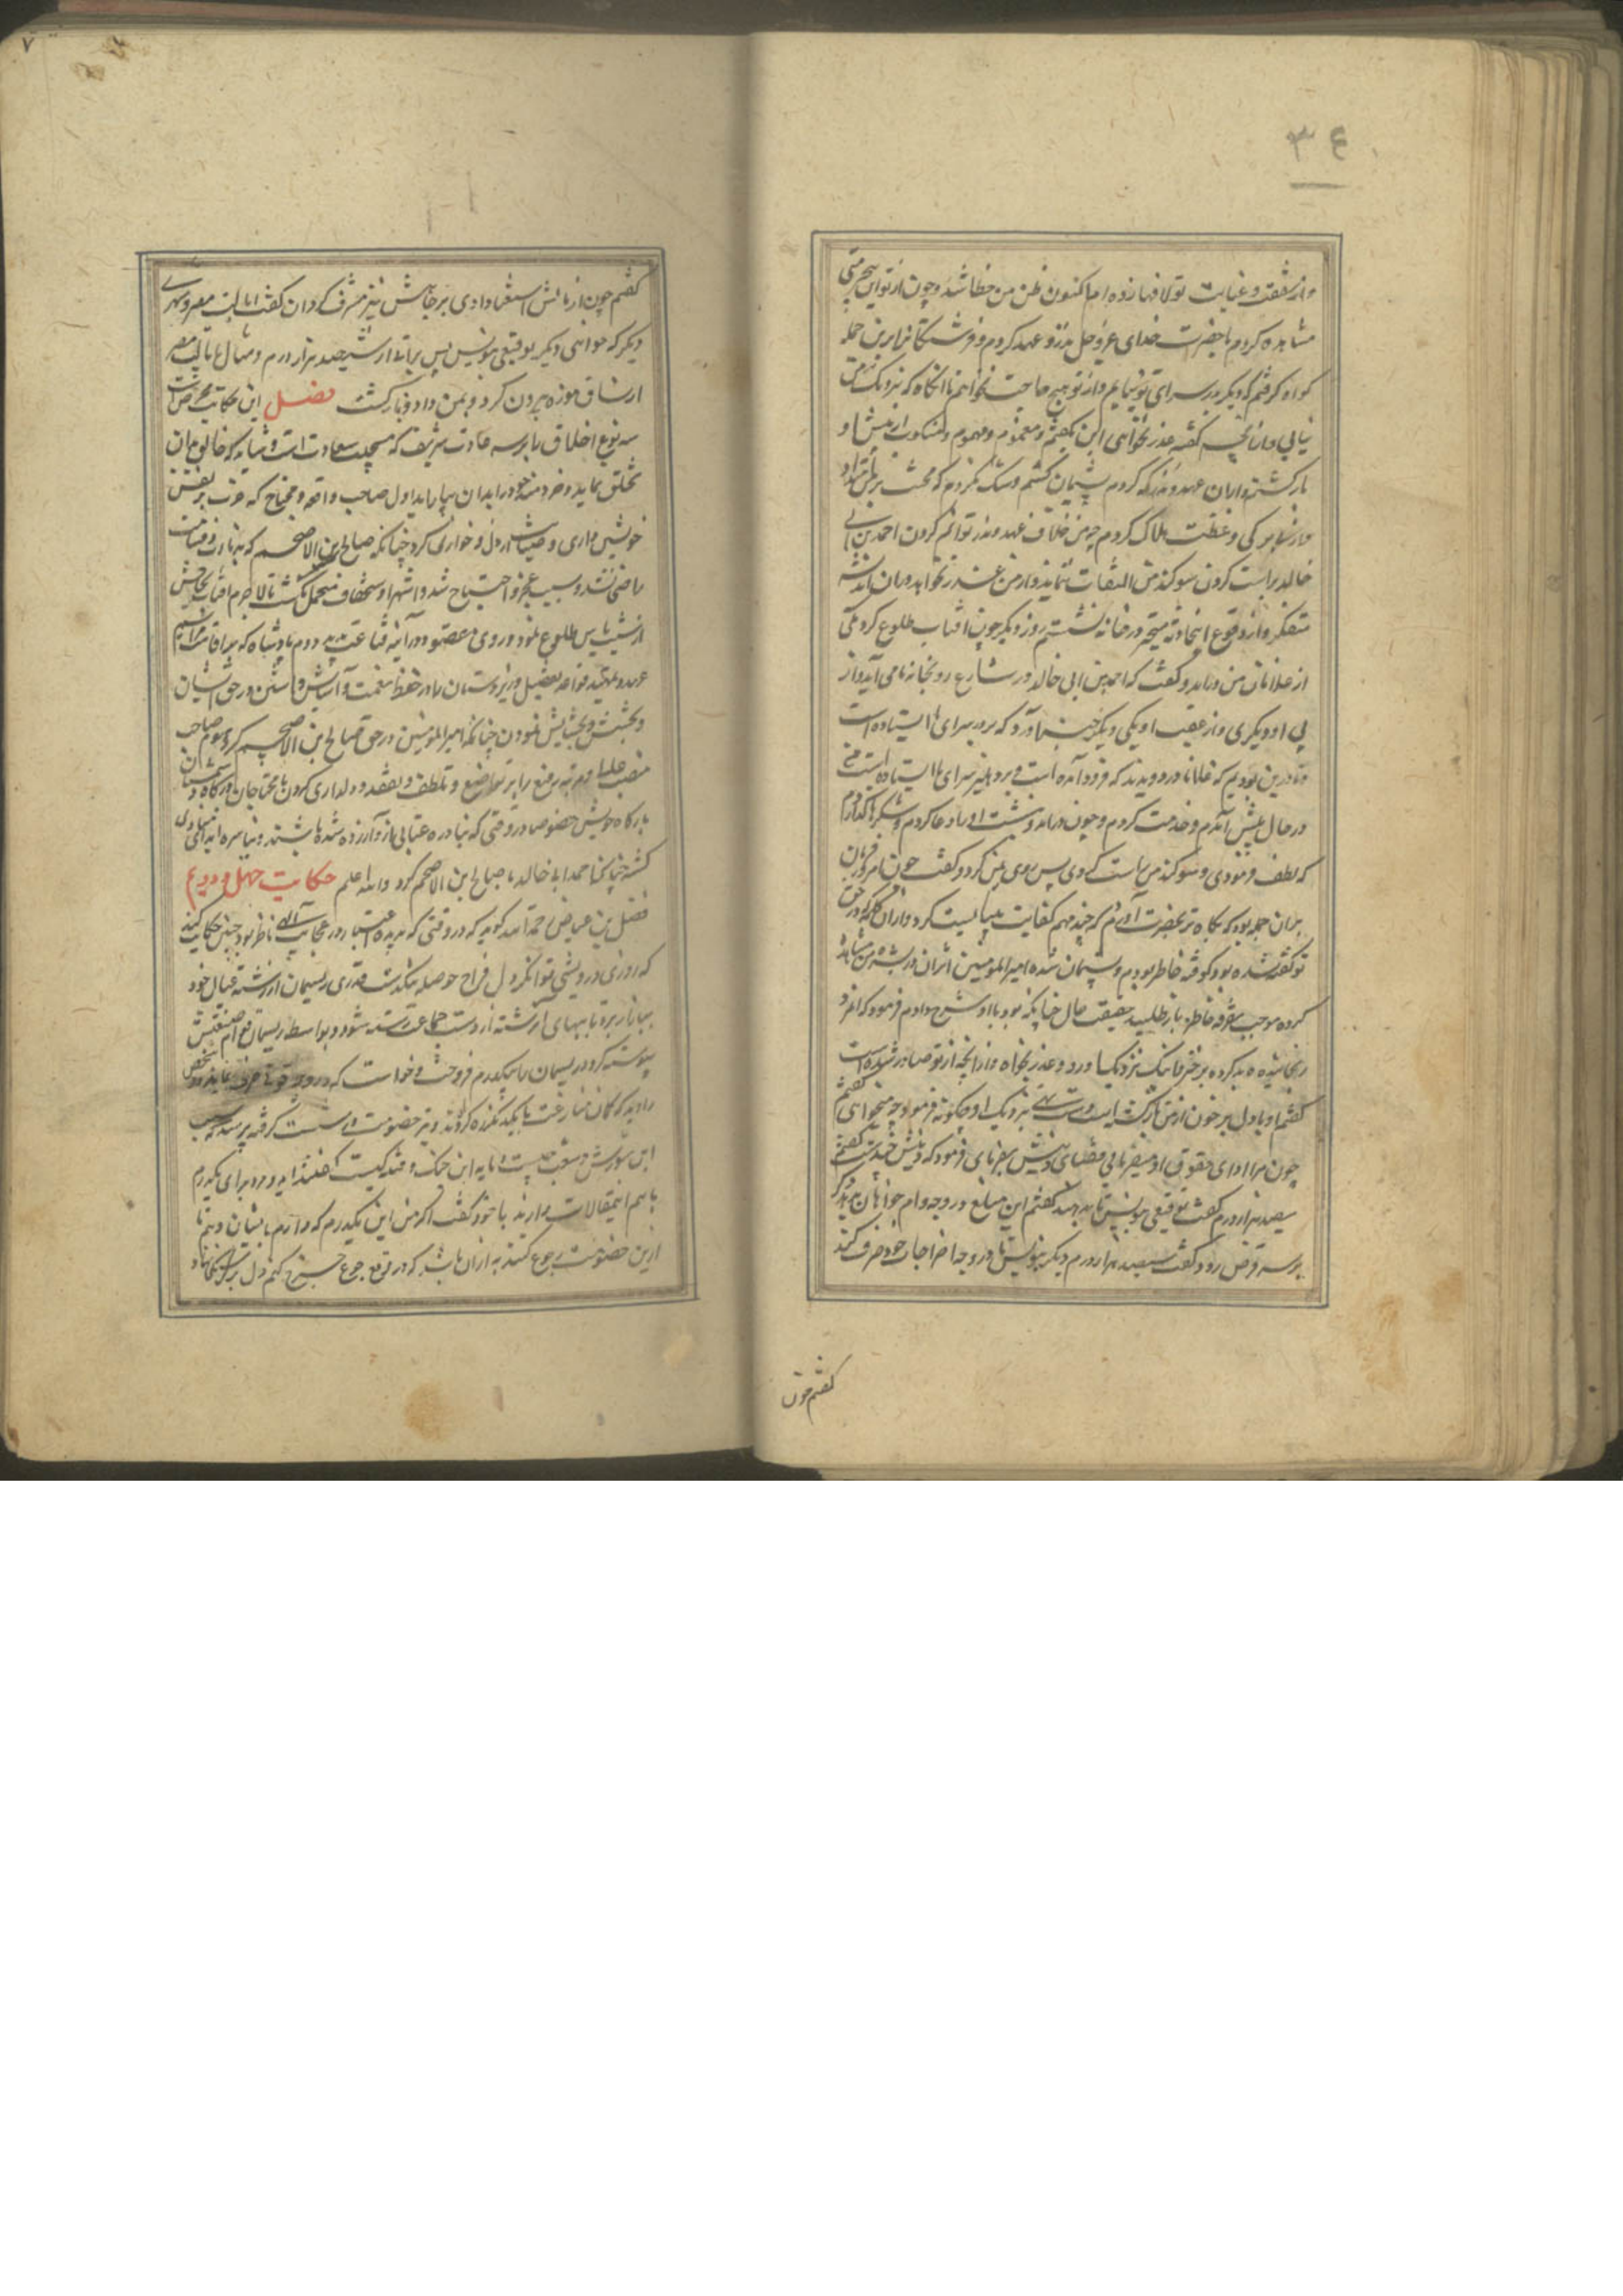 ٣٤
و از شفقت و عنایت تو لافها زده اما کنون ظن من خطا شد و چون از تو این بیحرمتی
مشاهده کردم با حضرت خدای عز و جل نذر و عهد کردم و فرشتگانرا برین جمله
کواه کرفتم که دیکر بدر سرای تو نیایم و از تو هیچ حاجت نخواهم تا انکاه که نزدیک من
نیایی و از انچه کفته عذر نخواهی این بکفتم و مغموم و مهموم و منکوب از پیش او
بازکشتم و از ان عهد و نذر که کردم پشیمان کشتم و شک نکردم که محنت بر من
و از دلتنکی و عظت هلاک کردم چه من خلاف عهد و نذر نتوانم کردن احمد بن ابی
خالد براست کردن سوکند من التفات ننماید و از من عذر نخواهد در ان اندیشه
متفکر و از وقوع این حادثه متحیر در خانه نشستم روز دیکر چون افتاب طلوع کرد یکی
از غلامان من درامد و کفت که احمد بن ابی خالد در شارع رو بخانه ما می آید و از
پی او دیکری و از عقب او یکی دیکر خبر آورد که بر در سرای ما ایستاده است
و ما درین بودیم که غلامان در دویدند که فرود آمده است و بر دهلیز سرای ما ایستاده است من
در حال پیش آمدم و خدمت کردم و چون درامد و بنشست او را دعا کردم و شکرها کذاردم
که لطف فرمودی و سوکند من راست کردی پس روی بمن کرد و کفت چون امروز فرمان
بران جمله بود که پکاه تر بحضرت آورم که چند مهم کفایت میبایست کرد و از ان کلمه که در حق
تو کفته شده بود کوفته خاطر بودم و پشیمان شده امیر المومنین اثر ان در بشره من مشاهده
کرده موجب تفرقه خاطر باز طلبید حقیقت حال چنانکه بود با او شرح دادم فرمود که مرد
رنجانیده بد کرده برخیز و نزدیک او رو و عذر بخواه و از انچه از تو صادر شده است
کفتم او با دل پر خون از من بازکشته است دست تهی نزدیک او چکونه فرمود چه میخواهی کفتم
چون مرا ادای حقوق او میفرمایی قضای دینش بفرمای فرمود که دینش چند است کفتم
سیصد هزار درم کفت توقیعی بنویس تا بدهند کفتم این مبلغ در وجه وام خواهان بدهد دیکر
بر سر قرض رود کفت سیصد هزار درم دیکر بنویس تا در وجه اخراجات خود صرف کند
کفتم چون
٧
کفتم چون از مالش استغنا دادی بر جاهش نیز مشرف کردان کفت ایالت مصر و شهری
دیکر که خواهی دیکر توقیعی بنویس پس براتها از ششصد هزار درم و مثال ایالت مصر
از ساق موزه بیرون کرد و بمن داد و بازکشت فصل این حکایت محرض است
سه نوع اخلاق را بر سه عادت شریف که مهیج سعادت است و شاید که خالق بر ان
تخلق نماید و خردمند خود را بدان بیاراید اول صاحب واقعه و محتاج که عزت نفس
خویش داری و صیانت از ذل و خواری کرد چنانکه صالح بن الاضخم که
راضی نشد و بسبب عجز و احتیاج شد و اشتهار و استخفاف متحمل نکشت تا لاجرم افتاب نجاحش
از شب یاس طلوع نمود و روی مقصود در آینه قناعت بدید دوم پادشاه که بر اقامت مراسم
عهد و تمهید قواعد تفضل و زیردستان را در حفظ نعمت و آسایش داشتن و در حق ایشان
بخشش و بخشایش نمودن چنانکه امیر المومنین در حق صالح بن الاضخم کرد سوم صاحب
منصب علیا و مرتبه رفیع را بر تواضع و تلطف و تفقد و دلداری کردن با محتاجان درکاه و
بارکاه خویش خصوصا در وقتی که بنادره عتابی از و آزرده شده باشند و
کشته چنانکه احمد ابی خالد با صالح ابن الاضخم کرد والله اعلم حکایت چهل و دویم
فضل بن عیاض رحمة الله کوید که در وقتی که بدیده اعتبار در عجایب آلهی ناظر بود چنین حکایت کند
که روزی درویشی توانکر دل فراخ حوصله تنکدست قدری ریسمان از رشته عیال خود
ببازار برد تا ببهای آن رشته از دست جماعت رسته شود و بواسطه ریسمان
پیوسته کردد ریسمان را بیکدرم فروخت و خواست که در وجه قوتی صرف نماید دو شخص
را دید که کمان منازعت با یکدیکر بزه کرده‌اند و تیر خصومت در شست کرفته پرسید که سبب
این شورش و شعب چیست و مایه این جنک و فتنه کیست کفتند این دو مرد برای یکدرم
با هم این مقالات دارند با خود کفت اکر من این یکدرم که دارم بایشان دهم تا
ازین خصومت رجوع کنند به از ان باشد که در دفع جوع خرج کنم دل بر بینوائی نهاد